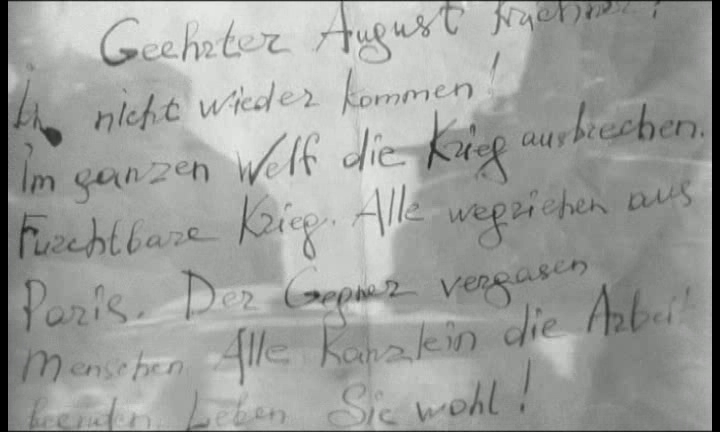 Geehrter August
nicht wieder kommen!
Im ganzen Welf die Krieg ausbrechen.
Furchtbare Krieg. Alle wegziehen aus
Paris. Der Gegner vergasen
Menschen Alle Kanzlein die Arbeit
beenden Leben Sie wohl!